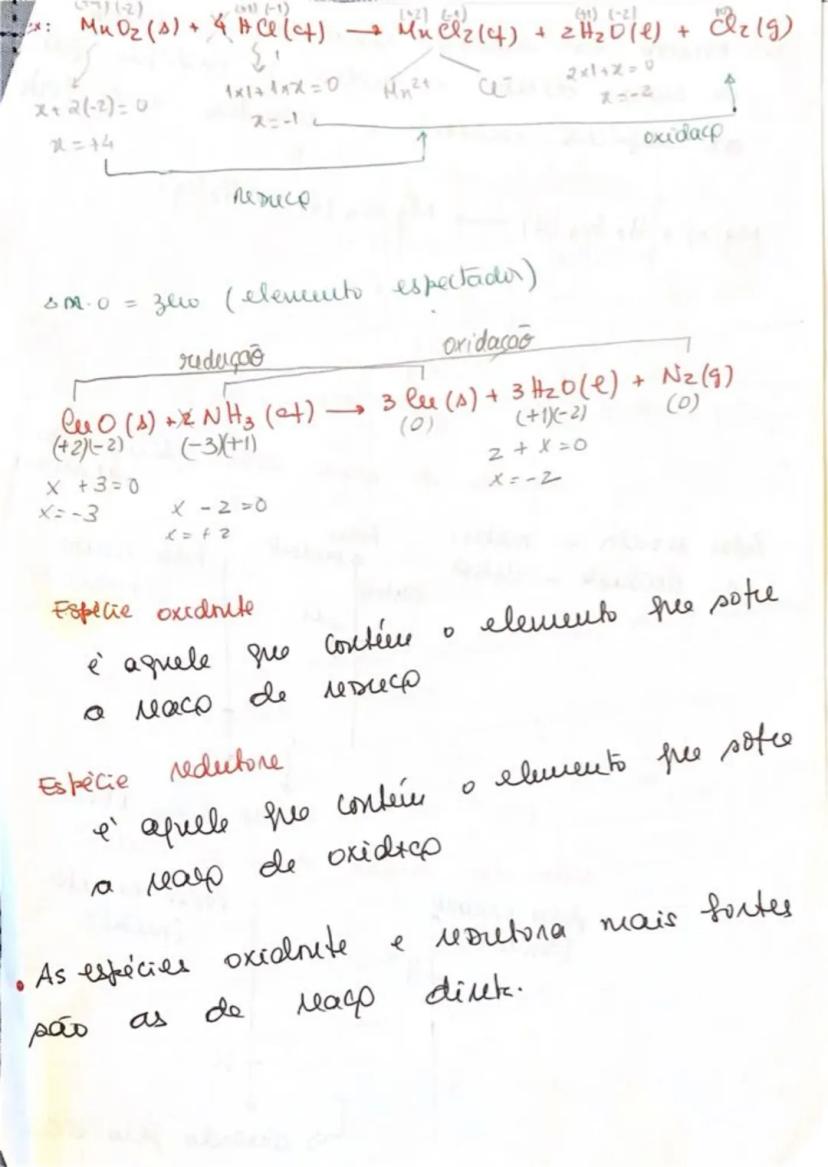 (+4) (-2) (+1) (-1) (+2) (-1) (+1) (-2) (0)
Ex: MnO2 (s) + 4 HCl (aq) → MnCl2 (aq) + 2H2O (l) + Cl2 (g)
x + 2(-2) = 0 1x1 + 1xx = 0 Mn2+ Cl- 2x1 + x = 0
x = +4 x = -1 x = -2
oxidaçº
reduçº
Δ n.o = zero (elemento espectador)
redução oxidação
CuO (s) + 2 NH3 (aq) → 3 Cu (s) + 3 H2O (l) + N2 (g)
(+2)(-2) (-3)(+1) (0) (+1)(-2) (0)
x + 3 = 0 2 + x = 0
x = -3 x - 2 = 0 x = -2
x = +2
Espécie oxidante
é aquele que contém o elemento que sofre
a reaçº de reduçº
Espécie redutora
é aquele que contém o elemento que sofre
a reaçº de oxidaçº
• As espécies oxidante e redutora mais fortes
são as de reaçº direta.